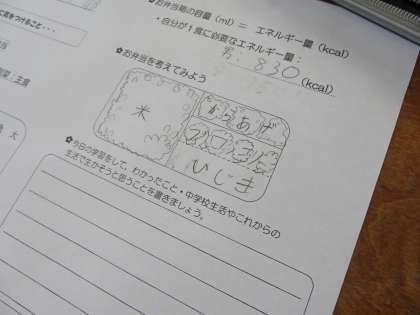 お弁当箱の容量(ml)= エネルギー量(kcal)
・自分が1食に必要なエネルギー量:
男:830(kcal)
お弁当を考えてみよう
米
からあげ
ひじき
今日の学習をして、わかったこと・中学校生活やこれからの
生活で生かそうと思うことを書きましょう。